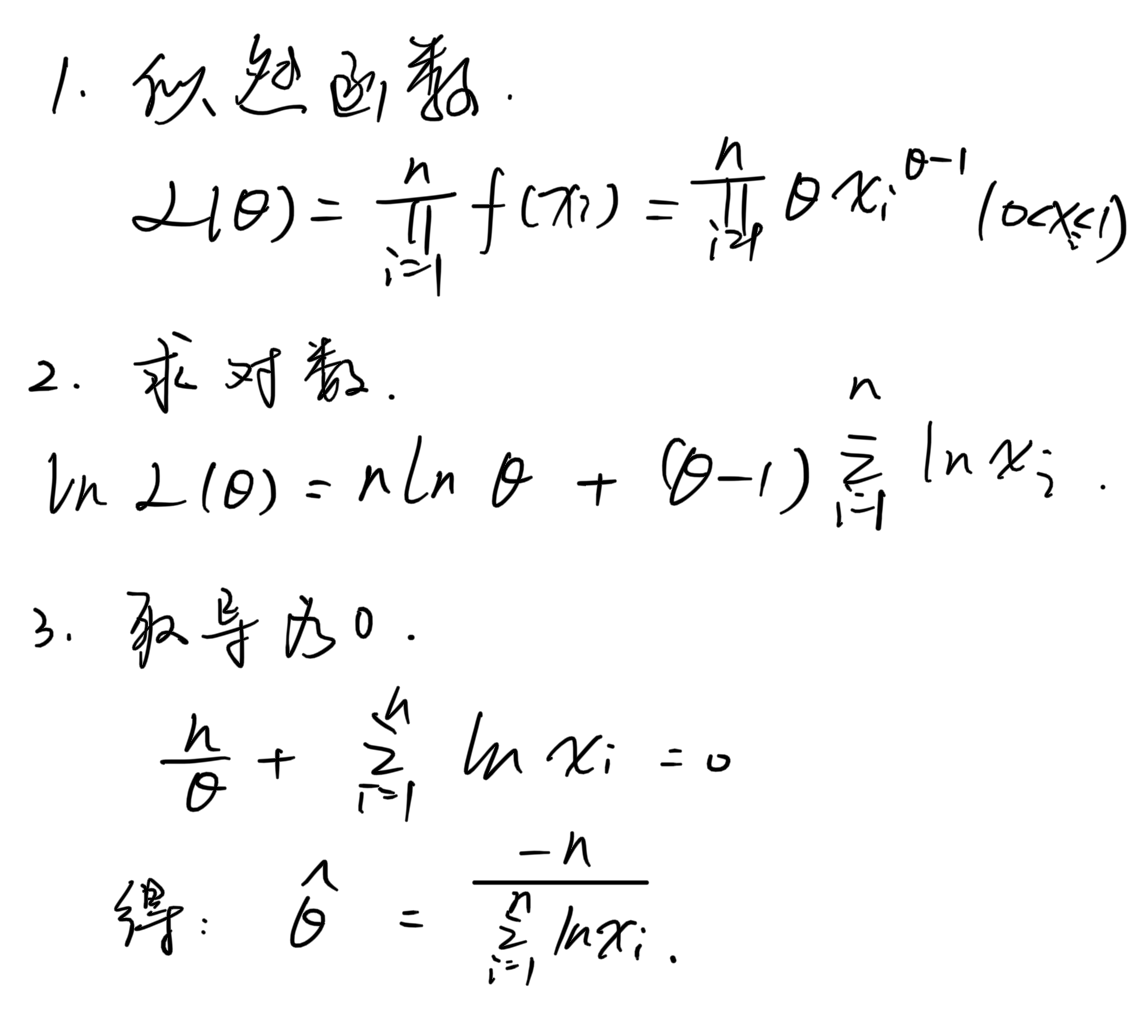 1. 似然函数.
L(θ) = ∏_{i=1}^{n} f(x_i) = ∏_{i=1}^{n} θ x_i^{θ-1} (0<x_i<1)
2. 求对数.
ln L(θ) = n ln θ + (θ-1) ∑_{i=1}^{n} ln x_i .
3. 取导为0.
n/θ + ∑_{i=1}^{n} ln x_i = 0
得: θ̂ = -n / ∑_{i=1}^{n} ln x_i .